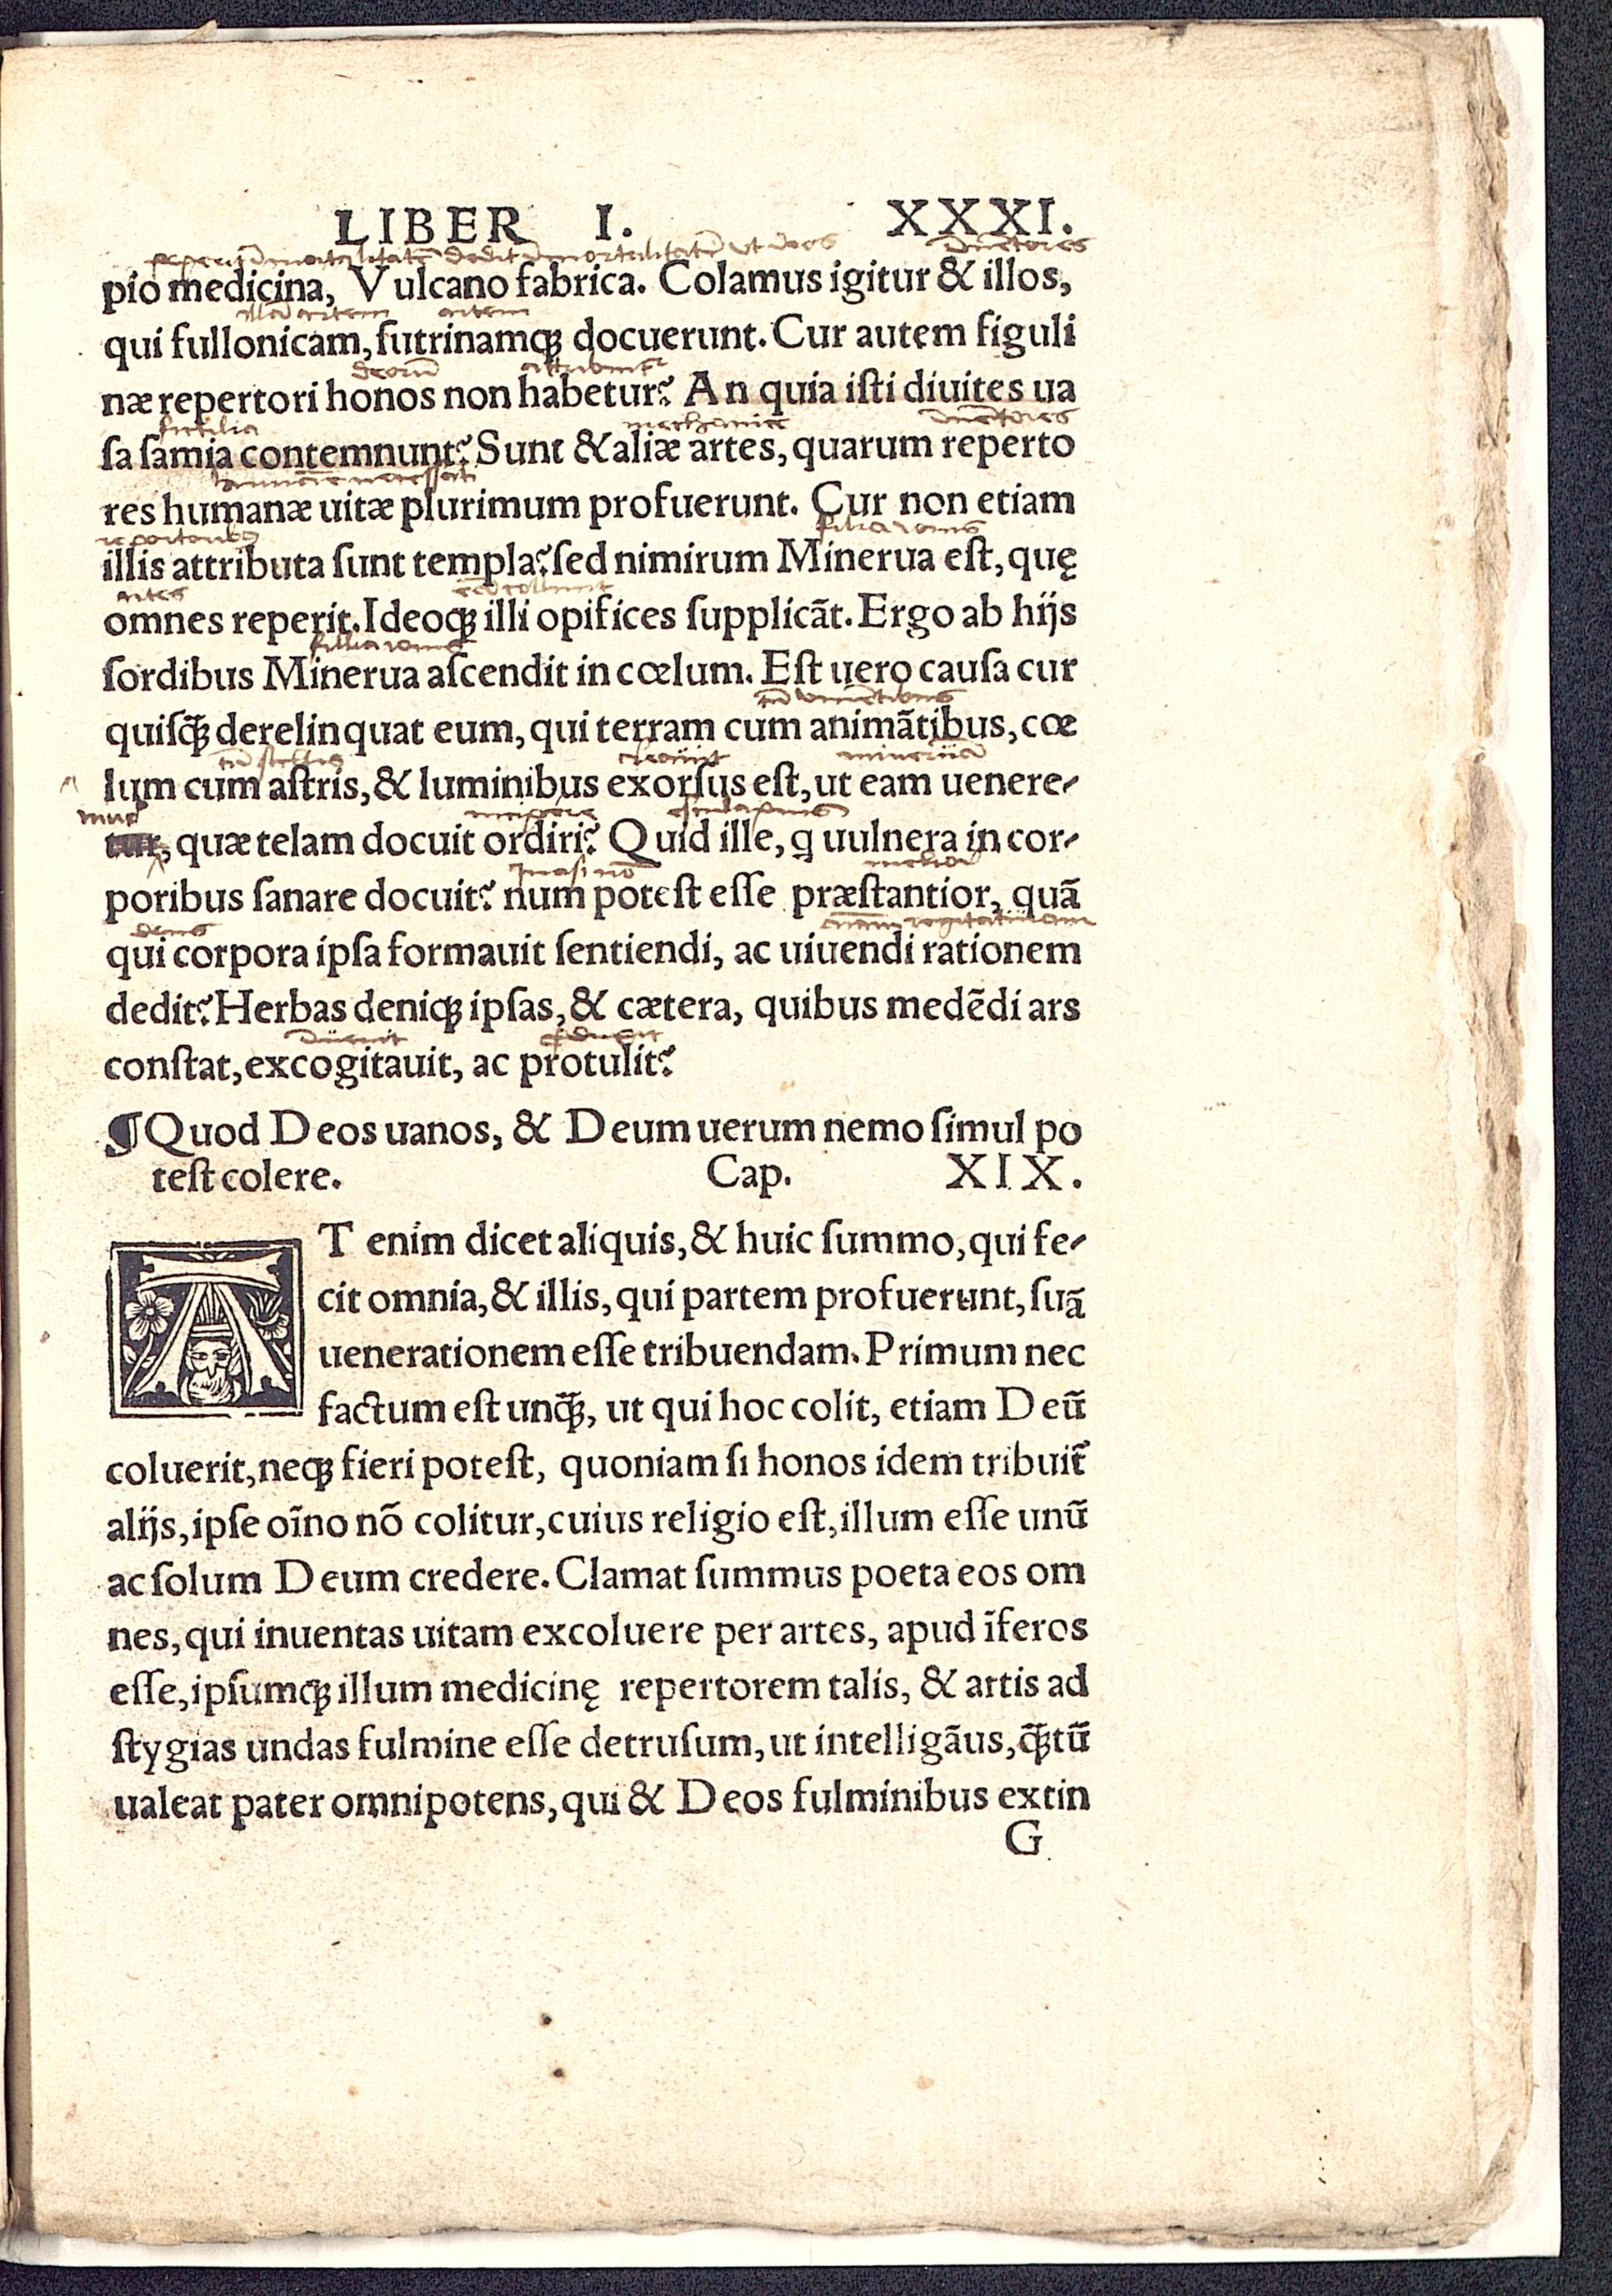 LIBER I. XXXI.
inuētores
pio medicina, Vulcano fabrica. Colamus igitur & illos,
illā artem artem
qui fullonicam, ſutrinamqꝫ docuerunt. Cur autem figuli
deorū
næ repertori honos non habetur? An quia iſti diuites ua
fictilia mechanice inuētores
ſa ſamia contemnunt? Sunt & aliæ artes, quarum reperto
res humanæ uitæ plurimum profuerunt. Cur non etiam
filia iouis
illis attributa ſunt templa? ſed nimirum Minerua eſt, quę
artes
omnes reperit. Ideoqꝫ illi opifices ſupplicāt. Ergo ab hijs
filia iouis
ſordibus Minerua aſcendit in cœlum. Eſt uero cauſa cur
quiſꝙ̃ derelinquat eum, qui terram cum animātibus, cœ
cū ſtellis
lum cum aſtris, & luminibus exorſus eſt, ut eam uenere-
mur
tur, quæ telam docuit ordiri? Quid ille, q uulnera in cor-
melior
poribus ſanare docuit? num poteſt eſſe præſtantior, quā
deus
qui corpora ipſa formauit ſentiendi, ac uiuendi rationem
dedit? Herbas deniqꝫ ipſas, & cætera, quibus medēdi ars
conſtat, excogitauit, ac protulit?
¶Quod Deos uanos, & Deum uerum nemo ſimul po
teſt colere. Cap. XIX.
AT enim dicet aliquis, & huic ſummo, qui fe-
cit omnia, & illis, qui partem profuerunt, ſuā
uenerationem eſſe tribuendam. Primum nec
factum eſt unꝙ̃, ut qui hoc colit, etiam Deū
coluerit, neqꝫ fieri poteſt, quoniam ſi honos idem tribuit̃
alijs, ipſe oīno nō colitur, cuius religio eſt, illum eſſe unū
ac ſolum Deum credere. Clamat ſummus poeta eos om
nes, qui inuentas uitam excoluere per artes, apud īferos
eſſe, ipſumqꝫ illum medicinę repertorem talis, & artis ad
ſtygias undas fulmine eſſe detruſum, ut intelligāus, ꝙ̃tū
ualeat pater omnipotens, qui & Deos fulminibus extin
G